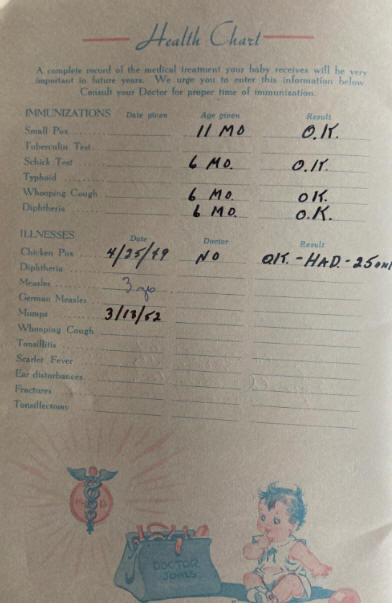 Health Chart
A complete record of the medical treatment your baby receives will be very
important in future years. We urge you to enter this information below
Consult your Doctor for proper time of immunization.
IMMUNIZATIONS Date given Age given Result
Small Pox 11 MO O.K.
Tuberculin Test
Schick Test 6 MO. O.K.
Typhoid
Whooping Cough 6 MO. OK.
Diphtheria 6 MO. O.K.
ILLNESSES Date Doctor Result
Chicken Pox 4/25/49 NO OK. - HAD - 25 on
Diphtheria
Measles 3
German Measles
Mumps 3/13/52
Whooping Cough
Tonsillitis
Scarlet Fever
Ear disturbances
Fractures
Tonsillectomy
DOCTOR
JONES